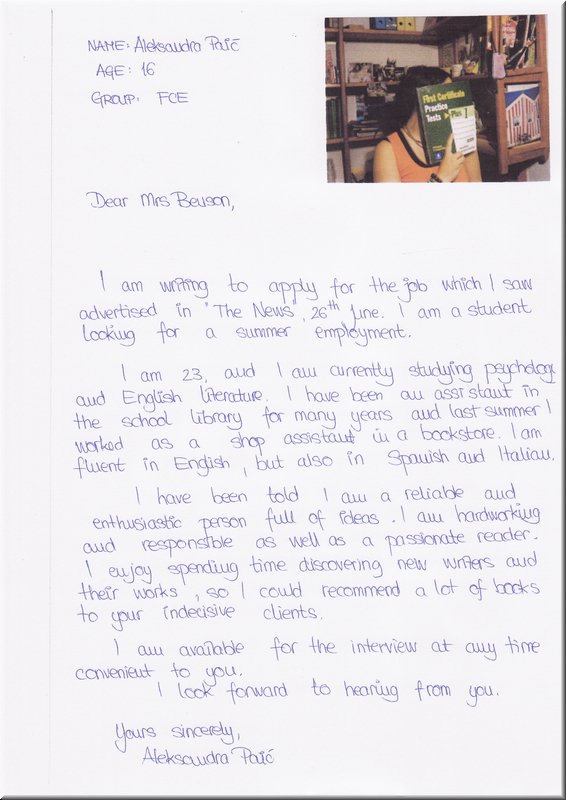 NAME: Aleksandra Paić
AGE: 16
GROUP: FCE
First Certificate
Practice
Tests Plus 1
Dear Mrs Beuson,
I am writing to apply for the job which I saw
advertised in "The News", 26th June. I am a student
looking for a summer employment.
I am 23, and I am currently studying psychology
and English literature. I have been an assistant in
the school library for many years and last summer I
worked as a shop assistant in a bookstore. I am
fluent in English, but also in Spanish and Italian.
I have been told I am a reliable and
enthusiastic person full of ideas. I am hardworking
and responsible as well as a passionate reader.
I enjoy spending time discovering new writers and
their works, so I could recommend a lot of books
to your indecisive clients.
I am available for the interview at any time
convenient to you.
I look forward to hearing from you.
Yours sincerely,
Aleksandra Paić